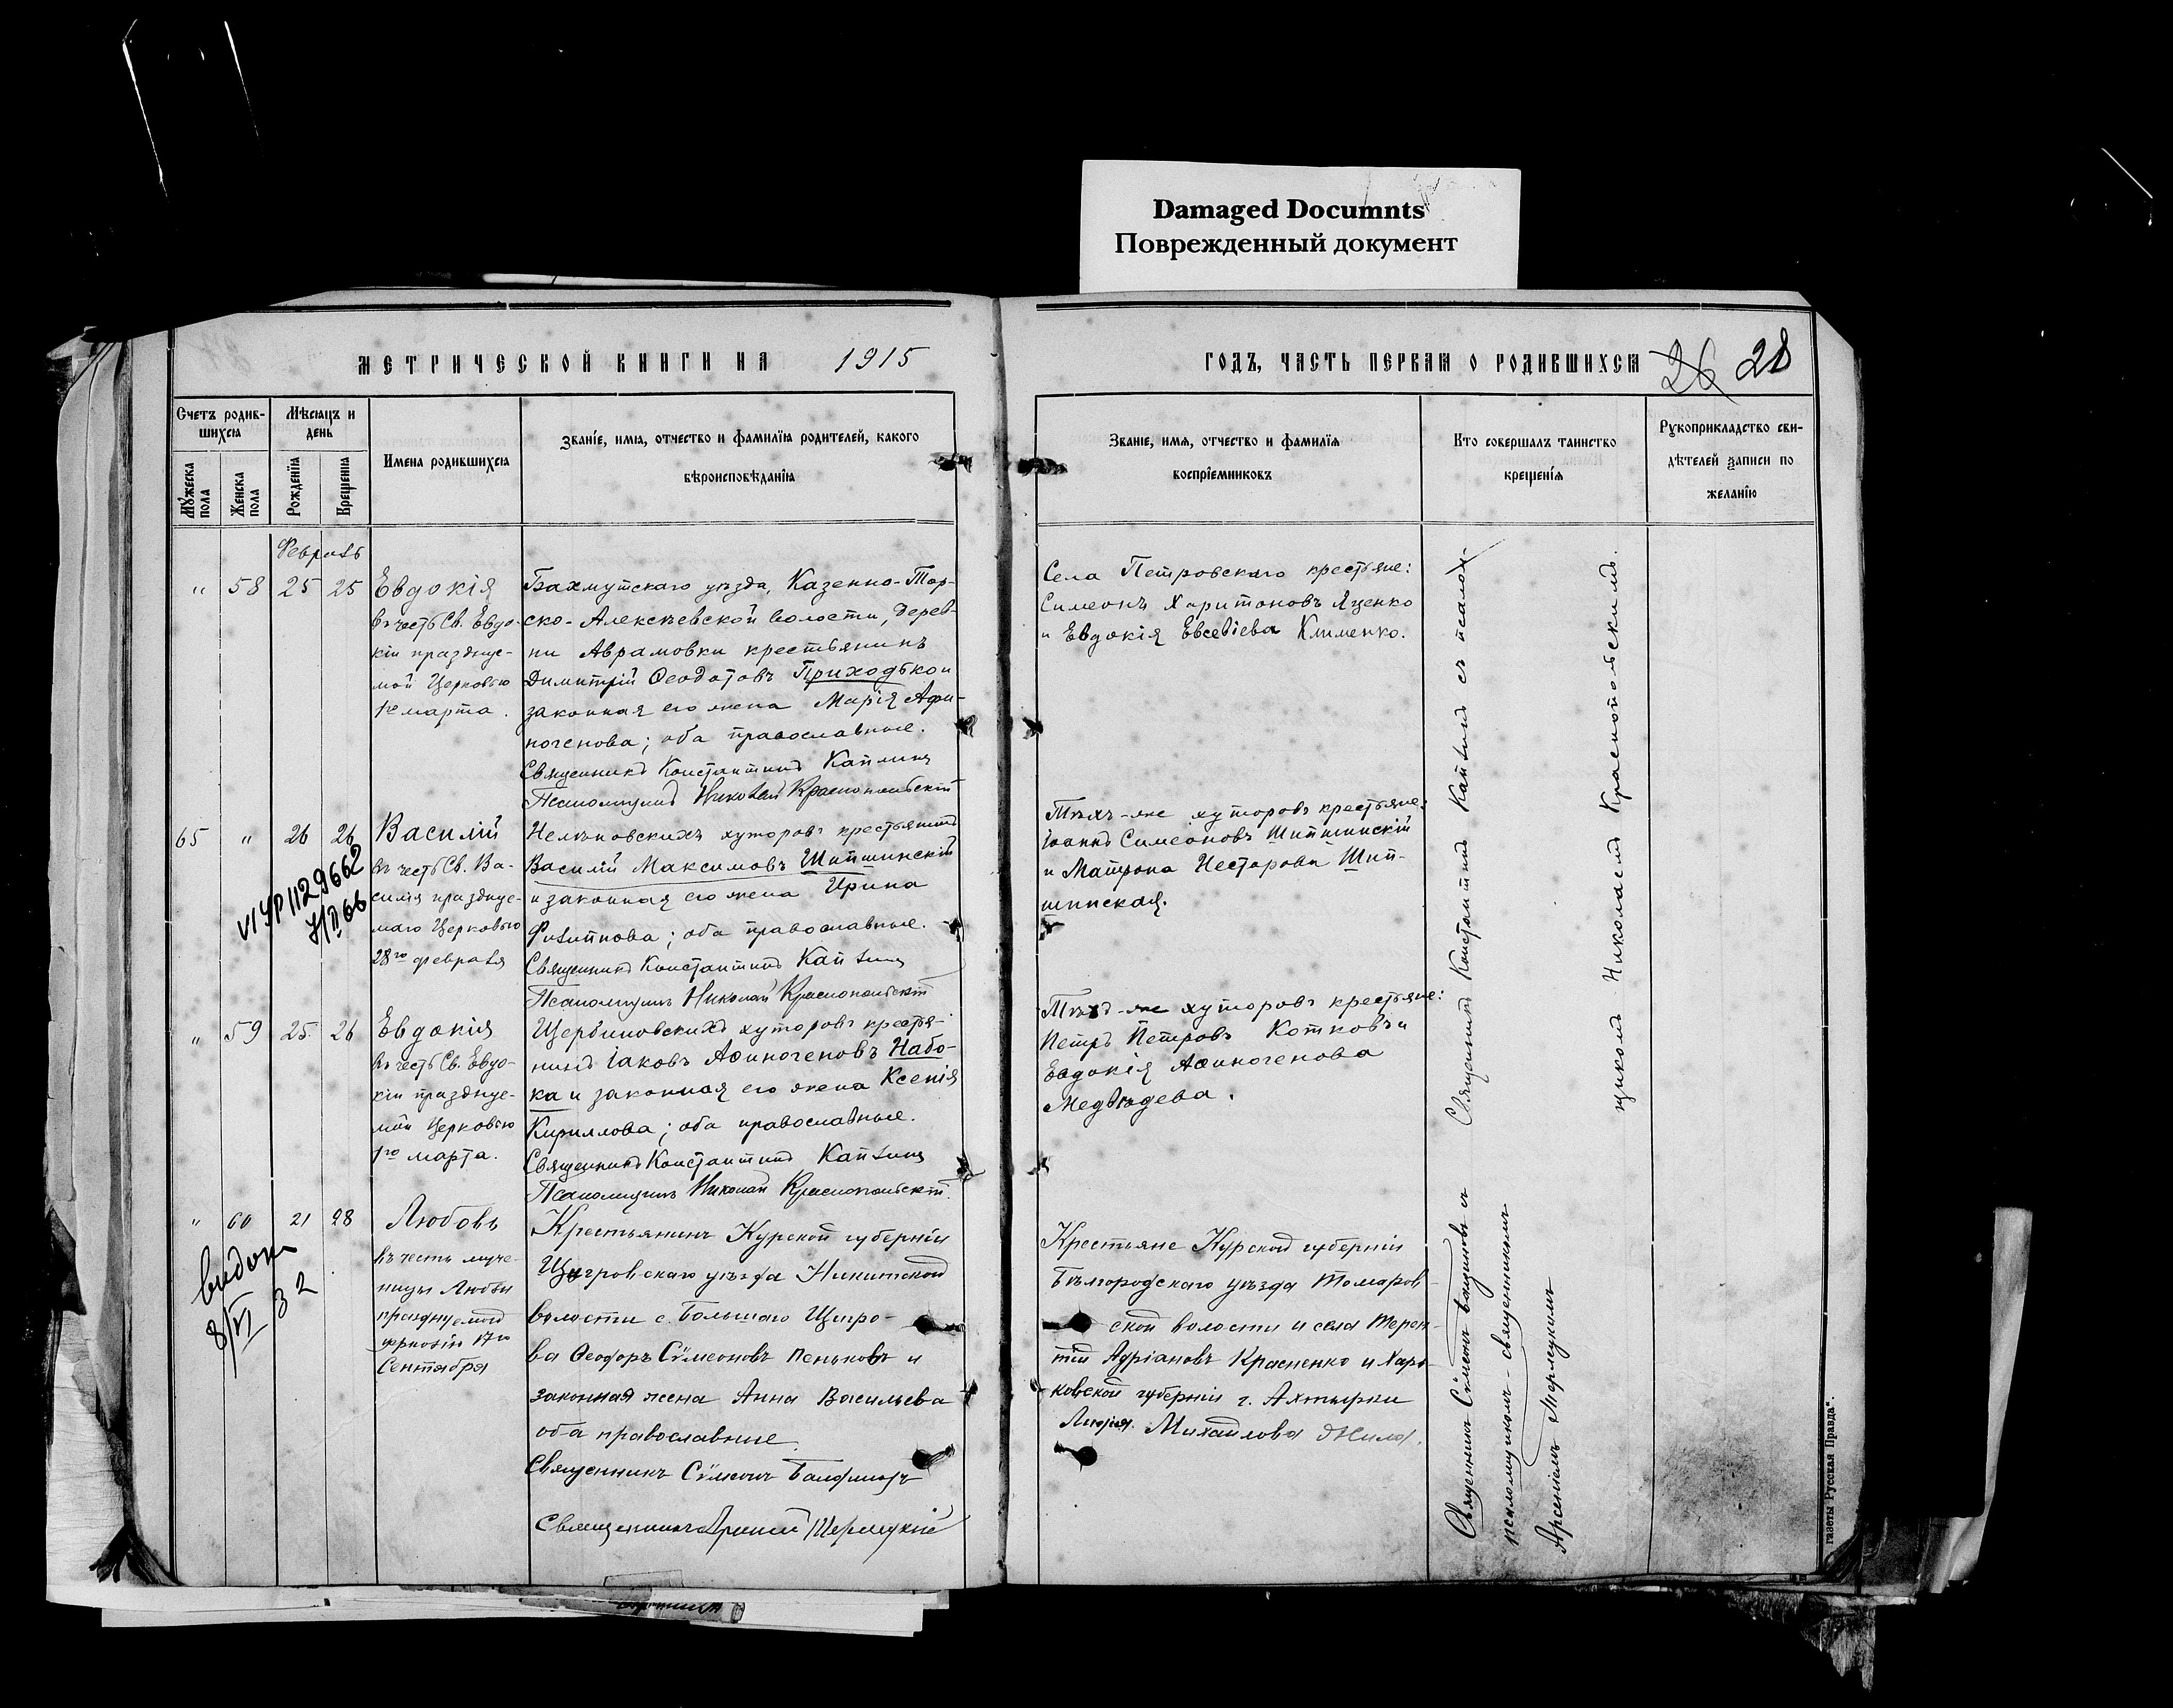 Damaged Documnts
Поврежденный документ
МЕТРИЧЕСКОЙ КНИГИ НА 1915
ГОДЪ, ЧАСТЬ ПЕРВАЯ О РОДИВШИХСЯ 26 28
Счетъ родив-
шихся
Мужеска пола
Женска пола
Мѣсяцъ и
день
Рожденїя
Крещенїя
Имена родившихся
Званїе, имя, отчество и фамилїя родителей, какого
вѣроисповѣданїя
Званїе, имя, отчество и фамилїя
воспрїемниковъ
Кто совершалъ таинство
крещенїя
Рукоприкладство сви-
дѣтелей записи по
желанїю
Февраль
" 58 25 25
Евдокія
въ честь Св. Евдо-
кіи праздъуе-
мой Церковью
1го марта.
Бахмутскаго уѣзда, Казенно-Тор-
ско-Алексѣевской волости, дерев-
ни Аврамовки крестьянинъ
Димитрій Ѳеодотовъ Приходько и
законная его жена Марія Афи-
ногенова; оба православные.
Священникъ Константинъ Каплинъ
Псаломщикъ Николай Краснопольскій
Села Петровскаго крестьяне:
Симеонъ Харитоновъ Яценко
и Евдокія Евсевіева Клименко.
65 " 26 26
Василій
въ честь Св. Ва-
силія праздъуе-
маго Церковью
28го февраля
VI УР 1129662
7/II 66
Нелѣповскихъ хуторовъ крестьянинъ
Василій Максимовъ Шипшинскій
и законная его жена Ирина
Филиппова; оба православные.
Священникъ Константинъ Каплинъ
Псаломщикъ Николай Краснопольскій
Тѣхъ-же хуторовъ крестьяне:
Іоаннъ Симеоновъ Шипшинскій
и Матрона Нестерова Шип-
шинская.
" 59 25 26
Евдокія
въ честь Св. Евдо-
кіи праздъуе-
мой Церковью
1го марта.
Щербиновскихъ хуторовъ крестья-
нинъ Іаковъ Аѳиногеновъ Набо-
ка и законная его жена Ксенія
Кириллова; оба православные.
Священникъ Константинъ Каплинъ
Псаломщикъ Николай Краснопольскій.
Тѣхъ-же хуторовъ крестьяне:
Петръ Петровъ Котковъ и
Евдокія Аѳиногенова
Медвѣдева.
Священникъ Константинъ Каплинъ съ псалом-
щикомъ Николаемъ Краснопольскимъ.
" 60 21 28
Любовь
въ честь муче-
ницы Любви
празднуемой
церковію 17го
Сентября
видом
8/VI 32
Крестьянинъ Курской губерніи
Щигровскаго уѣзда Никитской
волости с. Большаго Щигро-
ва Ѳеодоръ Сѵмеоновъ Пеньковъ и
законная жена Анна Васильева
оба православные.
Священникъ Сѵмеонъ
Священникъ
Крестьяне Курской губерніи
Бѣлгородскаго уѣзда Томаров-
ской волости и села Терен-
тій Адріановъ Красненко и Харь-
ковской губерніи г. Ахтырки
Михайлова
Священникъ Сѵмеонъ съ
псаломщикомъ-священникомъ
Арсеніемъ
газеты Русская Правда".